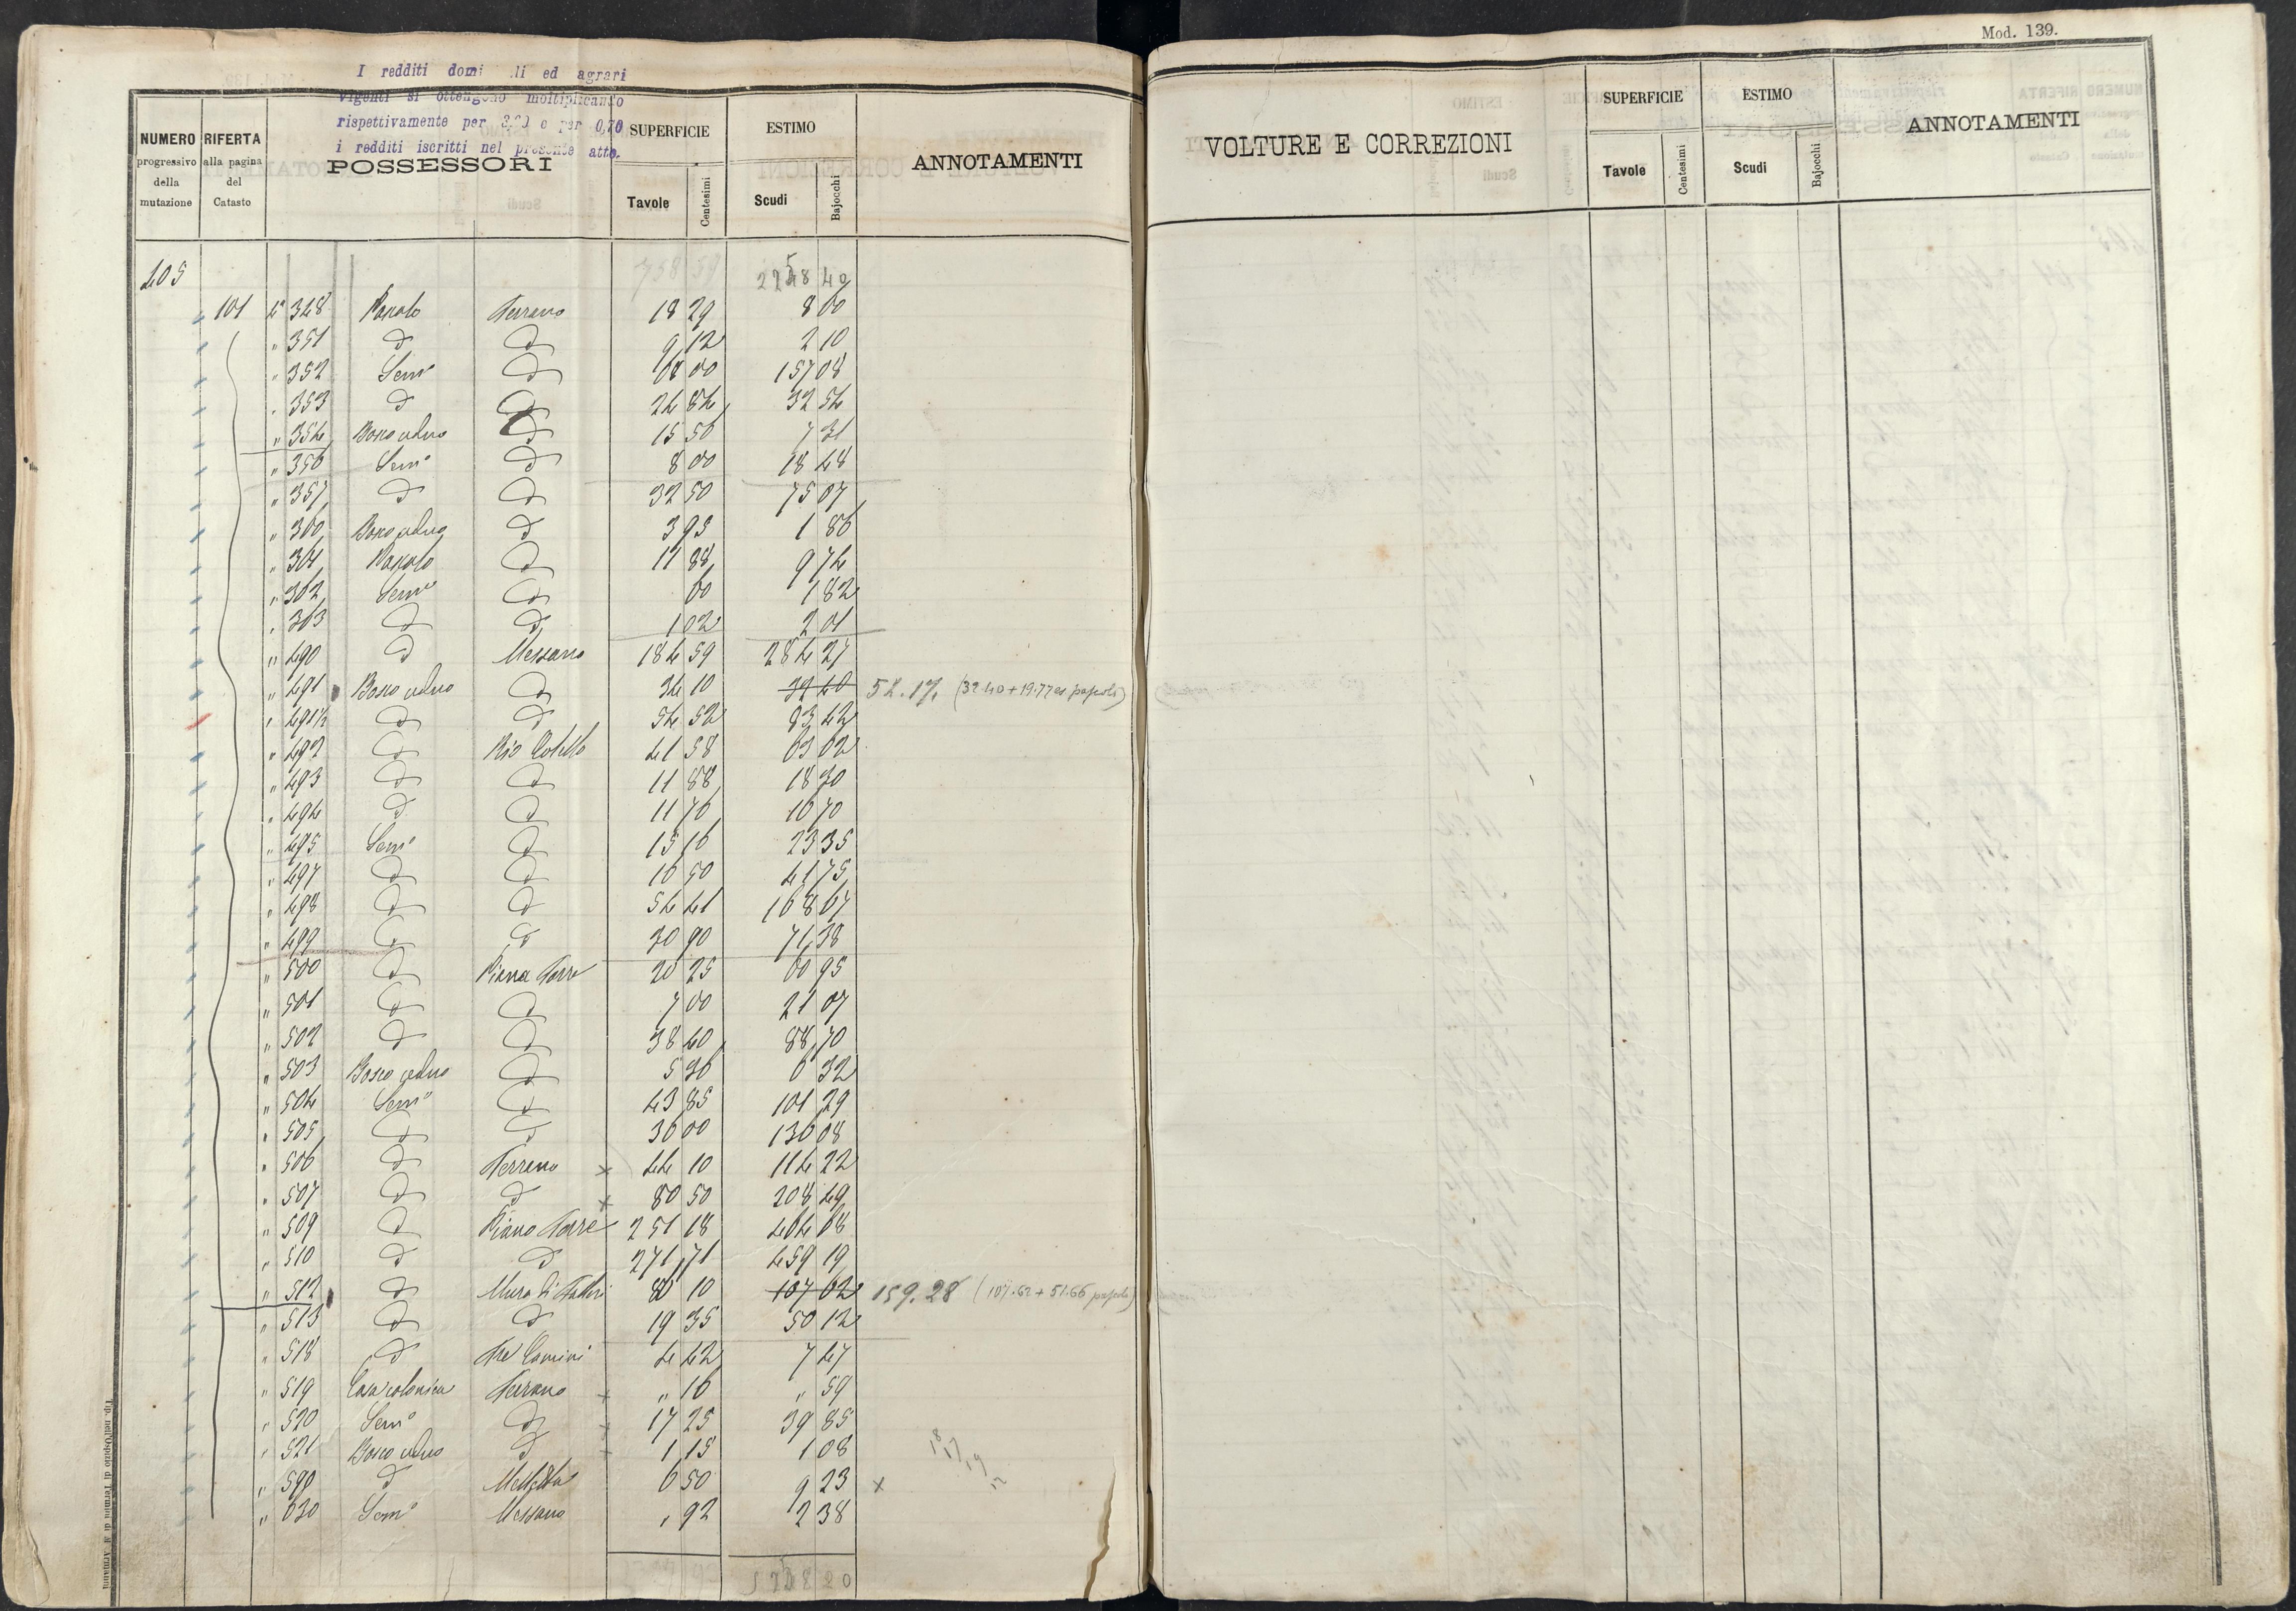 Mod. 139.
I redditi domi li ed agrari
vigenti si ottengono moltiplicando
rispettivamente per e per 0,70
i redditi iscritti nel presente atto.
NUMERO progressivo della mutazione
RIFERTA alla pagina del Catasto
POSSESSORI
SUPERFICIE
Tavole Centesimi
ESTIMO
Scudi Bajocchi
ANNOTAMENTI
105 758 59
101 1° 348 Pascolo Terrano 18 29 8 60
" 351 d d 9 12 2 10
" 352 Sem° d 68 00 157 08
" 353 d d 24 84 32 54
" 354 Bosco ceduo d 15 56 7 31
" 356 Sem° d 8 00 18 48
" 357 d d 32 50 75 07
" 360 Bosco ceduo d 3 93 1 86
" 361 Pascolo d 9 74
" 362 Sem° d 60 1 82
" 363 d d 1 02 2 01
" 490 d Messano 184 59 284 27
" 491 Bosco ceduo d 34 10 32 40 52.17. (32.40 + 19.77 ai pascoli)
" 491½ d d 54 52 83 42
" 492 d 41 58 63 62
" 493 d d 11 88 18 30
" 494 d d 11 76
" 495 Sem° d 15 16 23 35
" 497 d d 16 50 41 75
" 498 d d 54 41 168 67
" 499 d d 30 90 71 38
" 500 d Piana Torre 26 25 60 95
" 501 d d 7 00 21 07
" 502 d d 38 40 88 70
" 503 Bosco ceduo d 5 36 6 32
" 504 Sem° d 43 85 101 29
" 505 d d 36 00 136 08
" 506 d Terrano x 44 10 114 22
" 507 d d x 80 50 208 49
" 509 d Piano Torre 251 18 464 68
" 510 d d 271 71 459 19
" 512 d 80 10 107 62 159.28 (107.62 + 51.66 pascoli)
" 513 d d 19 35 50 12
" 518 d Tre Camini 4 42 7 47
" 519 Casa colonica Terrano x " 16 " 59
" 520 Sem° d 17 25 39 85
" 521 Bosco ceduo d 1 15 1 08
" 590 d 6 50 9 23 x
" 630 Sem° Messano " 92 2 38
VOLTURE E CORREZIONI
SUPERFICIE
Tavole Centesimi
ESTIMO
Scudi Bajocchi
ANNOTAMENTI